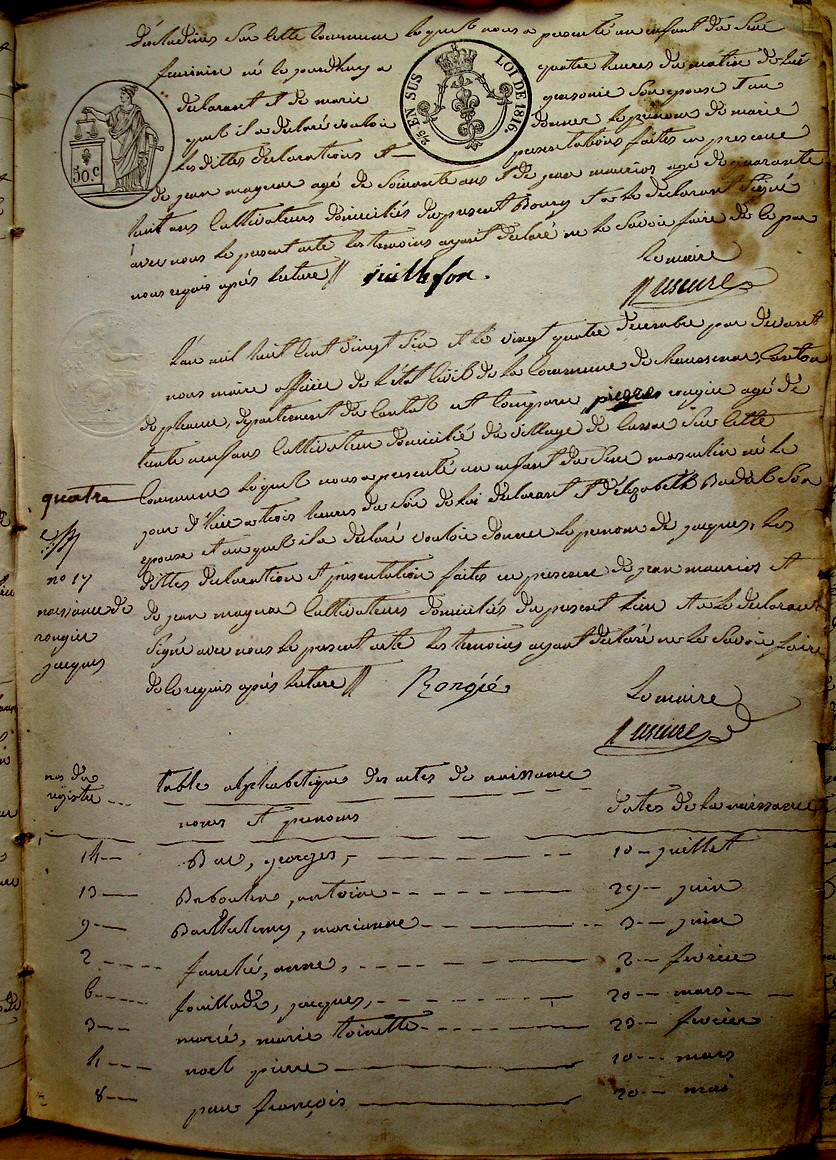 d'estadieu sur cette commune lequel nous a presenté un enfant du sexe
feminin né le jourdhuy a quatre heures du matin de lui
declarant et de marie son epouse et au
quel il a declaré vouloir donner le prenom de marie
les dittes declarations et presentations faites en presence
de jean magnac agé de soixante ans et de jean maurios agé de quarante
huit ans cultivateurs domiciliés du present Bourg et a le declarant signé
avec nous le present acte les temoins ayant declaré ne le savoir faire de ce par
nous requis après lecture
Le maire
25 EN SUS LOI DE 1816
50.c
L'an mil huit cent vingt six et le vingt quatre decembre par devant
nous maire officier de l'état civil de la Commune de canton
de pleaux, departement du Cantal est comparu pierre rongier agé de
trente neuf ans cultivateur domicilié du village de sur cette
Commune lequel nous a presenté un enfant du sexe masculin né le
jour d'hier a trois heures du soir de lui declarant et d'élizabeth son
epouse et au quel il a declaré vouloir donner le prenom de jacques, les
dittes declaration et presentation faites en presence de jean maurios et
de jean magnac cultivateurs domiciliés du present lieu et a le declarant
signé avec nous le present acte les temoins ayant declaré ne le savoir faire
de ce requis après lecture
Le maire
quatre
no 17
naissance de
rongier
jacques
nos du
registre
table alphabetique des actes de naissance
noms et prenoms
dates de la naissance
14 Bac, georges, 10 juillet
13 antoine 29 juin
9 Barthelemy, marianne 3 juin
2 anne, 2 fevrier
6 fouillade, jacques, 20 mars
3 marie toinette 23 fevrier
4 noel pierre 10 mars
8 françois 20 mai